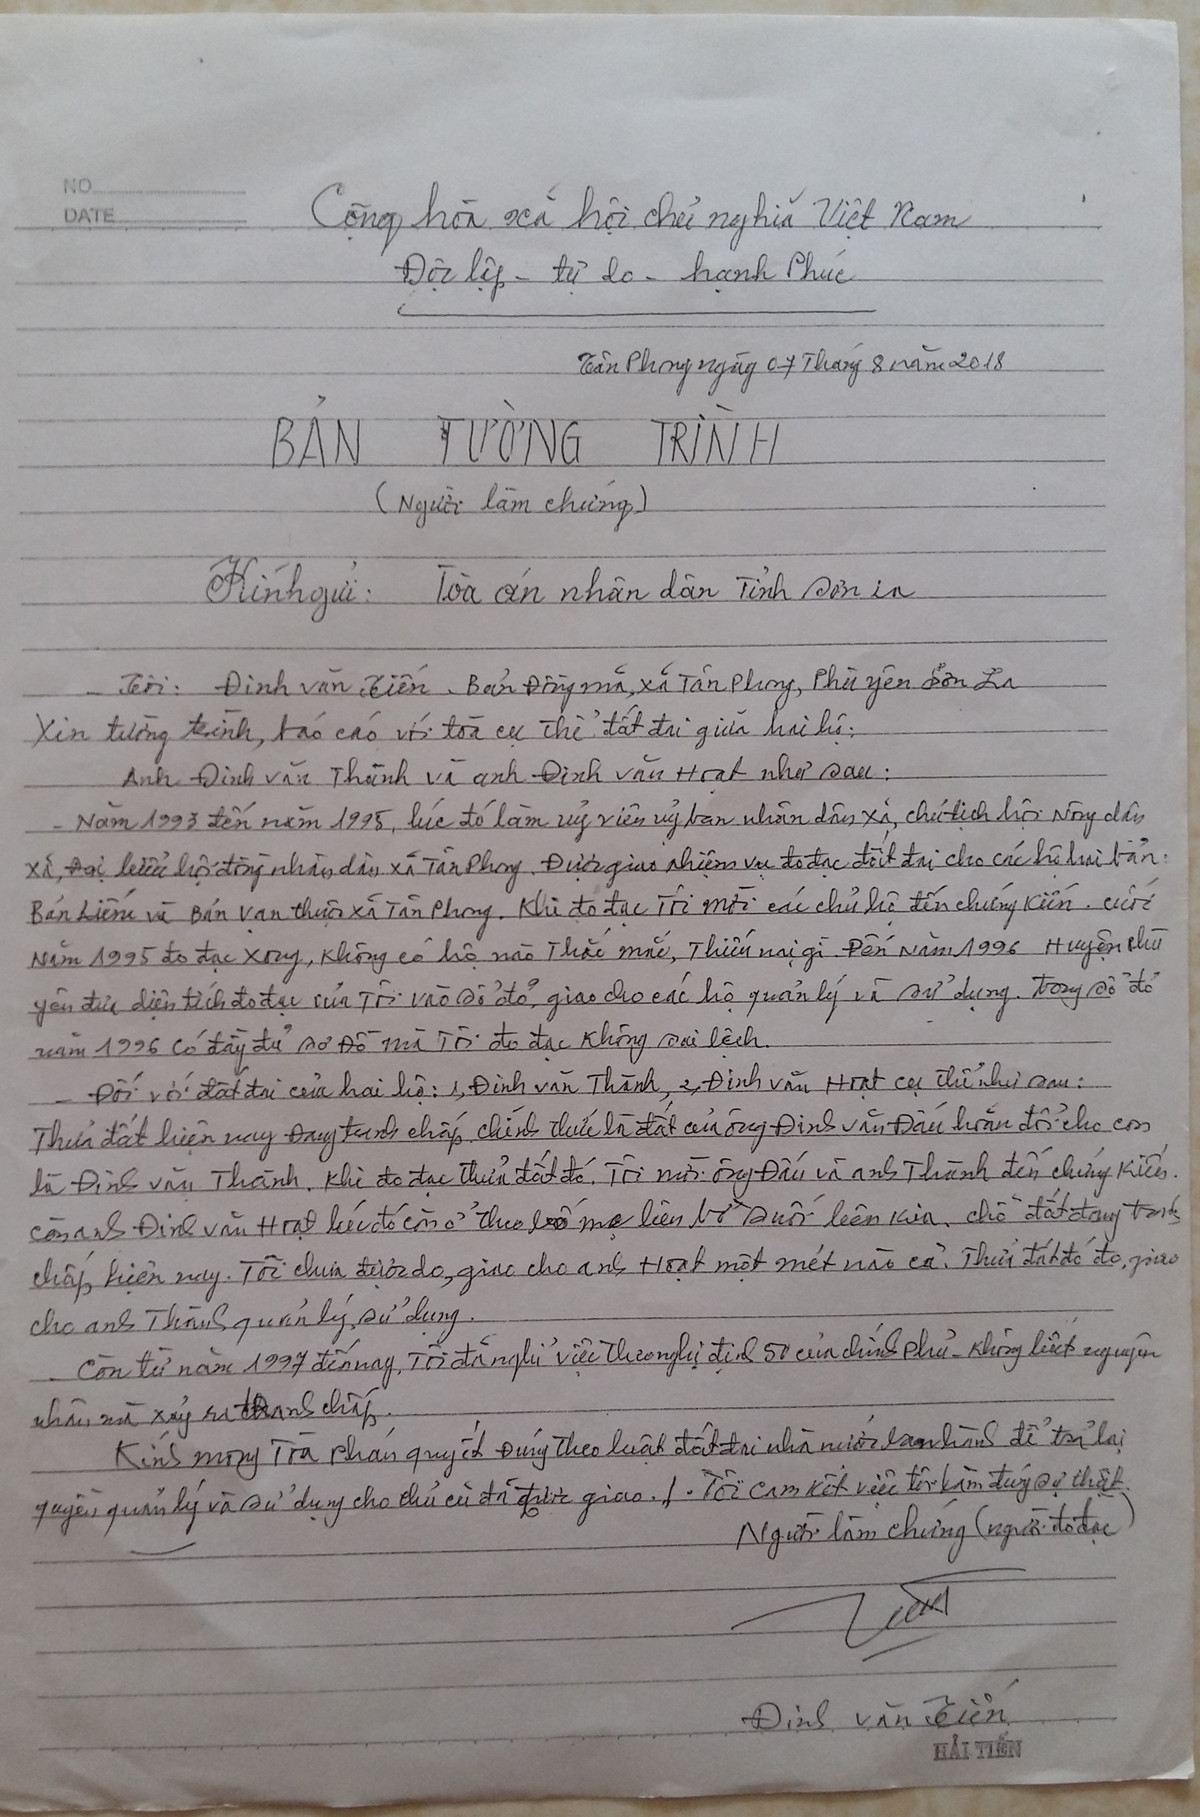 NO
DATE
Cộng hòa xã hội chủ nghĩa Việt Nam
Độc lập - tự do - hạnh Phúc
Tân Phong ngày 07 Tháng 8 năm 2018
BẢN TƯỜNG TRÌNH
(Người làm chứng)
Kính gửi: Tòa án nhân dân Tỉnh Sơn La
- Tôi: Đinh văn Tiến. Bản Đồng mã, xã Tân Phong, Phù yên Sơn La
Xin tường trình, báo cáo với tòa cụ thể đất đai giữa hai hộ:
Anh Đinh văn Thành và anh Đinh văn Hoạt như sau:
- Năm 1993 đến năm 1995, lúc đó làm uỷ viên uỷ ban nhân dân xã, chủ tịch hội Nông dân
xã, Đại biểu hội đồng nhân dân xã Tân Phong. Được giao nhiệm vụ đo đạc đất đai cho các hộ hai bản:
Bản Liếm và Bản Vạn thuộc xã Tân Phong. Khi đo đạc Tôi mời các chủ hộ đến chứng Kiến. cuối
Năm 1995 đo đạc xong, không có hộ nào Thắc mắc, Thiếu nại gì. Đến Năm 1996 Huyện Phù
yên đưa diện tích đo đạc của Tôi vào Sổ đỏ, giao cho các hộ quản lý và sử dụng. Trong sổ đỏ
năm 1996 có đầy đủ sơ đồ mà Tôi đo đạc không sai lệch.
- Đối với đất đai của hai hộ: 1, Đinh văn Thành, 2, Đinh văn Hoạt cụ thể như sau:
Thửa đất hiện nay Đang tranh chấp, chính thức là đất của ông Đinh văn Đấu hoán đổi cho con
là Đinh văn Thành. Khi đo đạc thửa đất đó, Tôi mời ông Đấu và anh Thành đến chứng Kiến.
còn anh Đinh văn Hoạt lúc đó còn ở theo bố mẹ bên bờ suối bên kia. chỗ đất đang tranh
chấp hiện nay. Tôi chưa được đo, giao cho anh Hoạt một mét nào cả. Thửa đất đó đo, giao
cho anh Thành quản lý, sử dụng.
- Còn từ năm 1997 đến nay, Tôi đã nghỉ việc theo nghị định 50 của chính Phủ - Không biết nguyên
nhân mà xảy ra tranh chấp.
Kính mong Tòa Phán quyết Đúng theo luật đất đai nhà nước ban hành để trả lại
quyền quản lý và sử dụng cho chủ cũ đã được giao./. Tôi cam kết việc tôi làm đúng sự thật.
Người làm chứng (người đo đạc)
Đinh văn Tiến
HẢI TIẾN